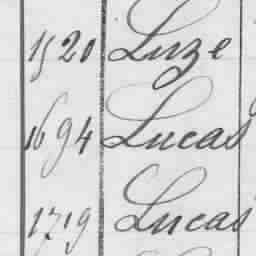 1520 Luze
1694 Lucas
1719 Lucas